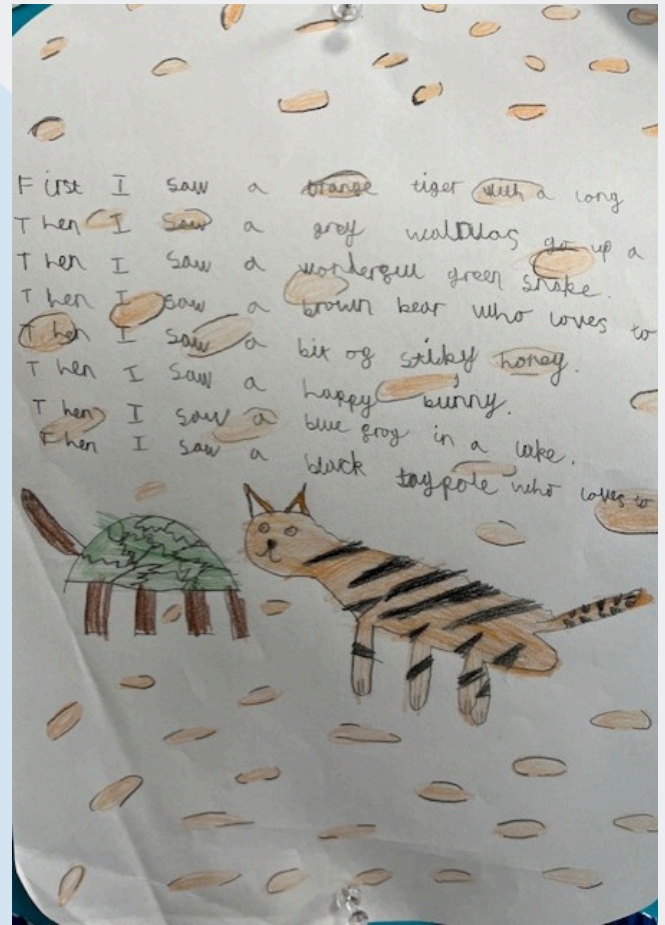 First I saw a orange tiger with a long
Then I saw a grey go up a
Then I saw a wonderful green snake.
Then I saw a brown bear who loves to
Then I saw a bit of stiky honey.
Then I saw a happy bunny.
Then I saw a blue frog in a lake.
Then I saw a black taypole who loves to